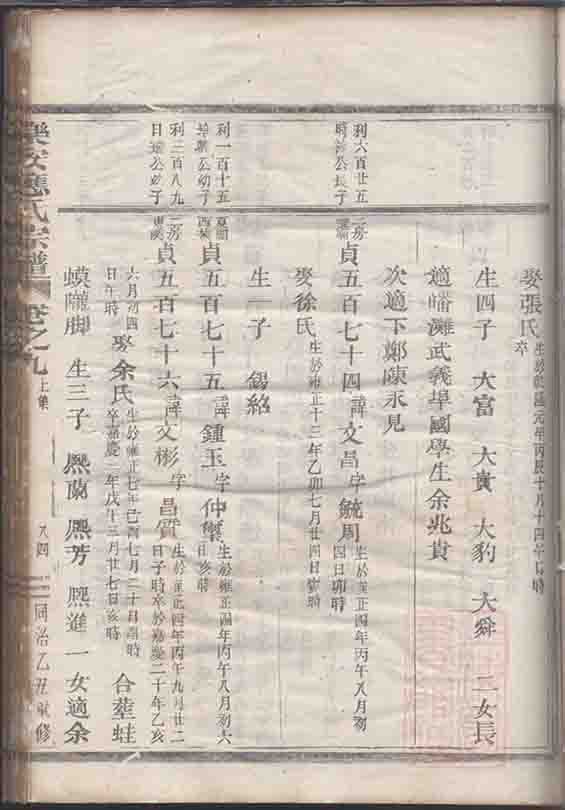 娶張氏 生於乾隆元年丙辰十月十四午七時
卒
生四子 大富 大貴 大豹 大舜 二女長
適皤灘武義埠國學生余兆貴
次適下鄭陳永見
利六百廿五
時諧公長子
二房
貞五百七十四 諱文昌字毓周 生於雍正四年丙午八月初
四日卯時
娶徐氏 生於雍正十三年乙卯七月廿四日寅時
生一子 錫紹
利一百十五
公幼子
貞五百七十五 諱鍾玉字仲璽 生於雍正四年丙午八月初六
日亥時
利三百八九
日瑞公幼子
二房
貞五百七十六 諱文彬字昌質 生於雍正四年丙午九月廿二
日子時卒於嘉慶二十年乙亥
六月初四
日午時
娶余氏 生於雍正七年己酉七月二十日時
卒嘉慶三年戊午三月廿七日亥時
合塟蛙
蟆脚 生三子 熈蘭 熈芳 熈進 一女適余
樂安應氏宗譜 卷之九 上集 八四 同治乙丑重修